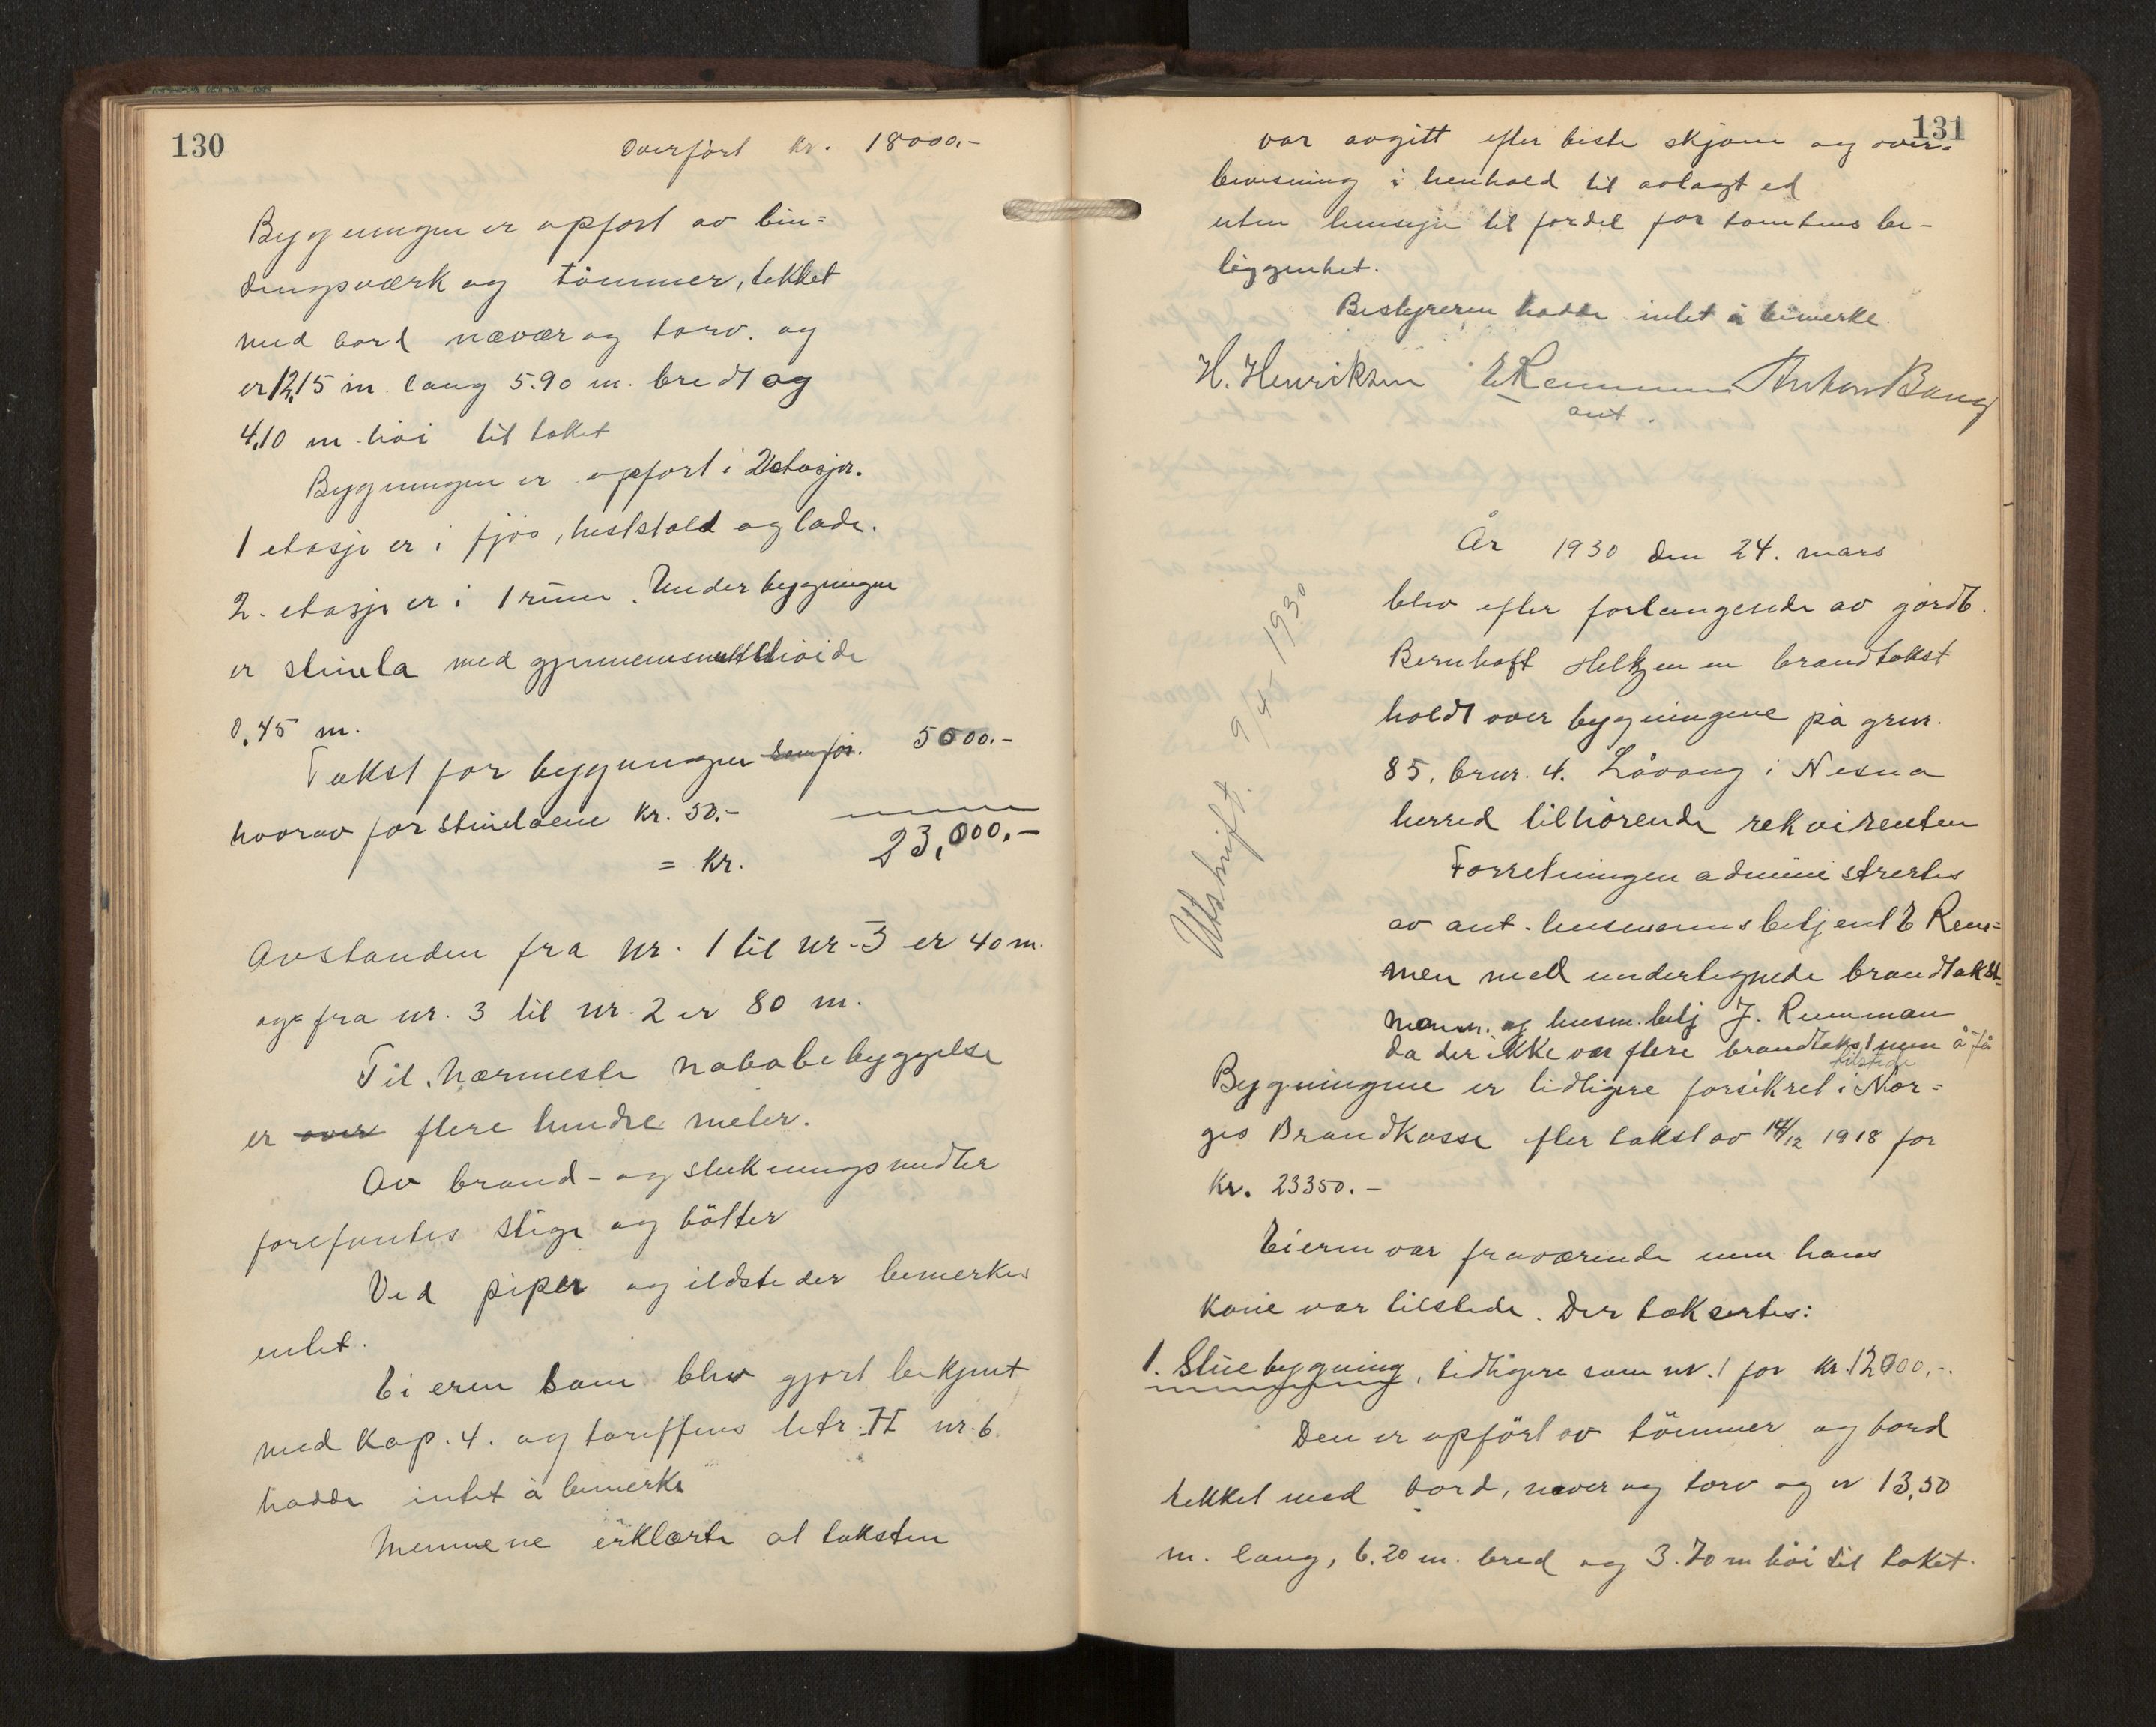 130
Overført kr. 18000.-
Bygningen er opført av bin=
dingsværk og tömmer, tekket
med bord næver og torv. og
er 12,15 m. lang 5.90 m. bredt og
4,10 m høi til taket
Bygningen er opført i 2 etasjer.
1 etasje er i fjøs, heststald og lade.
2. etasje er i 1 rum. Under bygningen
er stinela med gjennemsnittshøide
0,45 m.
Takst for bygningen som før. 5000.-
hvorav for stinelaene kr. 50.-
= kr. 23,000.-
Avstanden fra nr. 1 til nr. 3 er 40 m.
og fra nr. 3 til nr. 2 er 80 m.
Til nærmeste nabobebyggelse
er over flere hundre meter.
Av brand- og slukningsmidler
forefantes stige og bötter
Ved piper og ildsteder bemerkes
intet.
Eieren som blev gjort bekjent
med kap. 4. og tariffens litr. H nr. 6
hadde intet å bemerke
Mennene erklærte at taksten
131
var avgitt efter beste skjønn og over=
bevisning i henhold til avlagt ed
uten hensyn til fordel for tomtens be-
liggenhet.
Bestyreren hadde intet å bemerke.
H. Henriksen E Remmen Anton Bang
ant.
År 1930 den 24. mars
blev efter forlangende av gårdb.
Bernhoft Heltzen en brandtakst
holdt over bygningene på gnr.
85, brnr. 4. Låvong i Nesna
herred tilhörende rekvirenten
Forretningen administrertes
av ant. lensmannsbetjent E Rem=
men med undertegnede brandtakst-
mann. og lensm. betj J. Remman
da der ikke var flere brandtakstmenn å få
tilstede
Bygningene er tidligere forsikret i Nor=
ges Brandkasse efter takst av 14/12 1918 for
Kr. 23350.-
Eieren var fraværende men hans
kone var tilstede. Der taksertes:
1. Stuebygning, tidligere som nr. 1 for kr. 12000,-.
Den er opført av tömmer og bord
tekket med bord, never og torv og er 13,50
m. lang, 6.20 m. bred og 3.70 m høi til taket.
Utskrift. 9/4 1930